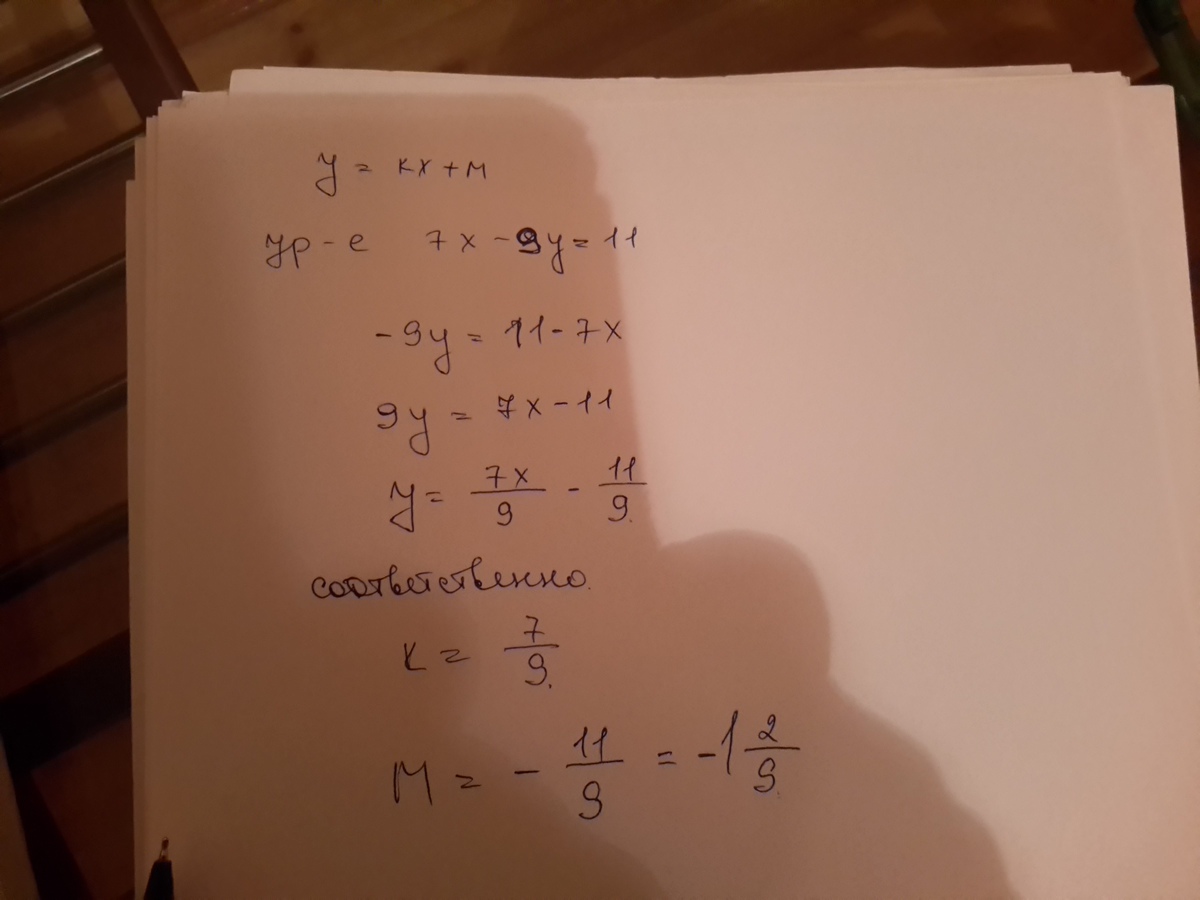 y = kx + м
ур-е 7x - 9y = 11
-9y = 11 - 7x
9y = 7x - 11
y = 7x/9 - 11/9.
соответственно.
k = 7/9.
М = - 11/9 = -1 2/9.